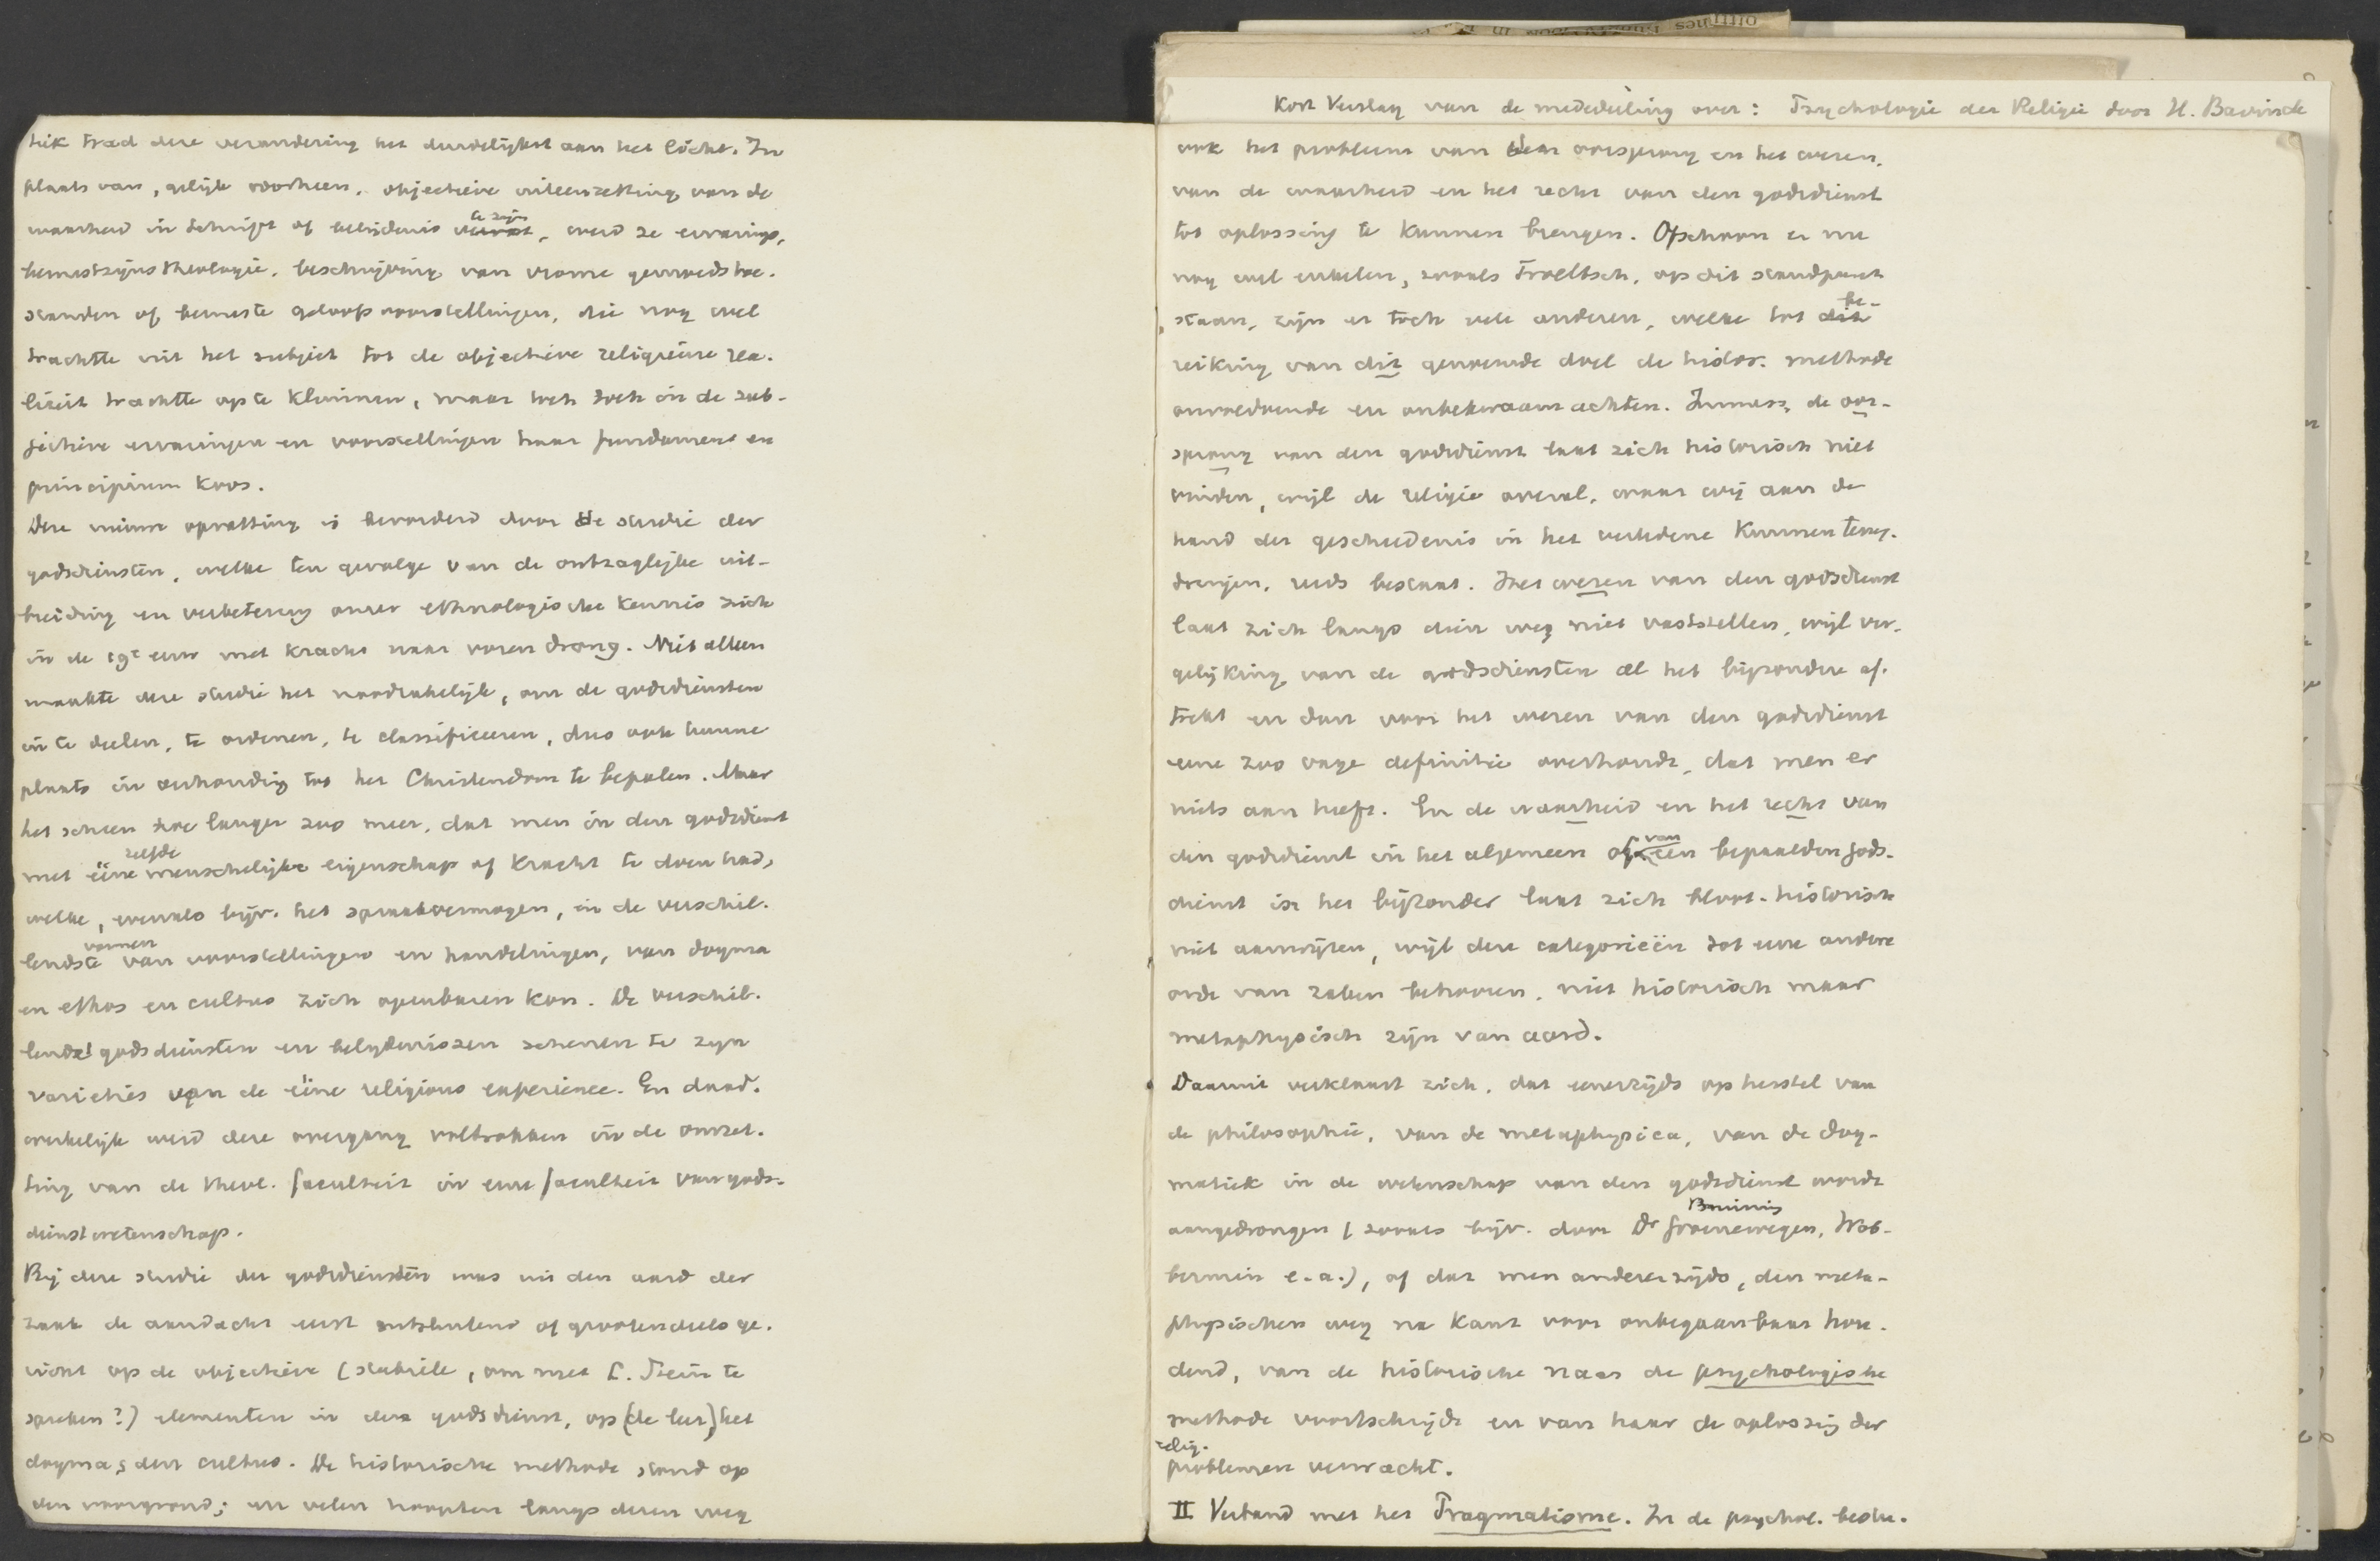 tiek trad deze verandering het duidelijkst aan het licht. In
plaats van, gelijk voorheen, objectieve uiteenzetting van de
waarheid in Schrift of belijdenis te zijn, werd ze ervarings,
bewustzijnstheologie, beschrijving van vrome gemoedstoe-
standen of bewuste geloofsvoorstellingen, die nog wel
trachtte uit het subject tot de objectieve religieuse rea-
liteit trachtte op te klimmen, maar toch in de sub-
jectieve ervaringen en voorstellingen haar fundament en
principium koos.
Deze nieuwe opvatting is bevorderd door de studie der
godsdiensten, welke ten gevolge van de ontzaglijke uit-
breiding en verbetering onzer ethnologische kennis zich
in de 19e eeuw met kracht naar voren drong. Niet alleen
maakte deze studie het noodzakelijk, om de godsdiensten
in te deelen, te ordenen, te classificeeren, dus ook hunne
plaats in verhouding tot het Christendom te bepalen. Maar
het scheen hoe langer zoo meer, dat men in den godsdienst
met ééne zelfde menschelijke eigenschap of kracht te doen had,
welke, evenals bijv. het spraakvermogen, in de verschil-
lendste vormen van voorstellingen en handelingen, van dogma
en ethos en cultus zich openbaren kon. De verschil-
lende godsdiensten en belijdenissen schenen te zijn
varieties van de ééne religious experience. En daad-
werkelijk werd deze overgang voltrokken in de omzet-
ting van de theol. faculteit in eene faculteit van gods-
dienstwetenschap.
Bij deze studie der godsdiensten was uit den aard der
zaak de aandacht eerst uitsluitend of grootendeels ge-
richt op de objectieve (stabiele, om met C. Stein te
spreken?) elementen in den godsdienst, op (de leer,) het
dogma, den cultus. De historische methode stond op
den voorgrond; en velen hoopten langs dezen weg
Kort Verslag van de mededeeling over: Psychologie der Religie door H. Bavinck
ook het probleem van den oorsprong en het wezen,
van de waarheid en het recht van den godsdienst
tot oplossing te kunnen brengen. Ofschoon er nu
nog wel enkelen, zooals Troeltsch, op dit standpunt
staan, zijn er toch vele anderen, welke tot be-
reiking van dit genoemde doel de histor. methode
onvoldoende en onbekwaam achten. Immers, de oor-
sprong van den godsdienst laat zich historisch niet
vinden, wijl de religie overal, waar wij aan de
hand der geschiedenis in het verledene kunnen terug-
dringen, reeds bestaat. Het wezen van den godsdienst
laat zich langs dien weg niet vaststellen, wijl ver-
gelijking van de godsdiensten al het bijzondere af-
trekt en dan voor het wezen van den godsdienst
eene zoo vage definitie overhoudt, dat men er
niets aan heeft. En de waarheid en het recht van
den godsdienst in het algemeen of van een bepaalden gods-
dienst in het bijzonder laat zich bloot-historisch
niet aanwijzen, wijl deze categorieën tot eene andere
orde van zaken behooren, niet historisch maar
metaphysisch zijn van aard.
Daaruit verklaart zich, dat eenerzijds op herstel van
de philosophie, van de metaphysica, van de dog-
matiek in de wetenschap van den godsdienst wordt
aangedrongen (zooals bijv. door Dr Groenewegen, Bruining, Wob-
bermin e.a.), of dat men anderzijds, den meta-
physischen weg na Kant voor onbegaanbaar hou-
dend, van de historische naar de psychologische
methode voortschrijdt en van haar de oplossing der
relig.
problemen verwacht.
II Verband met het Pragmatisme. In de psychol. bestu-